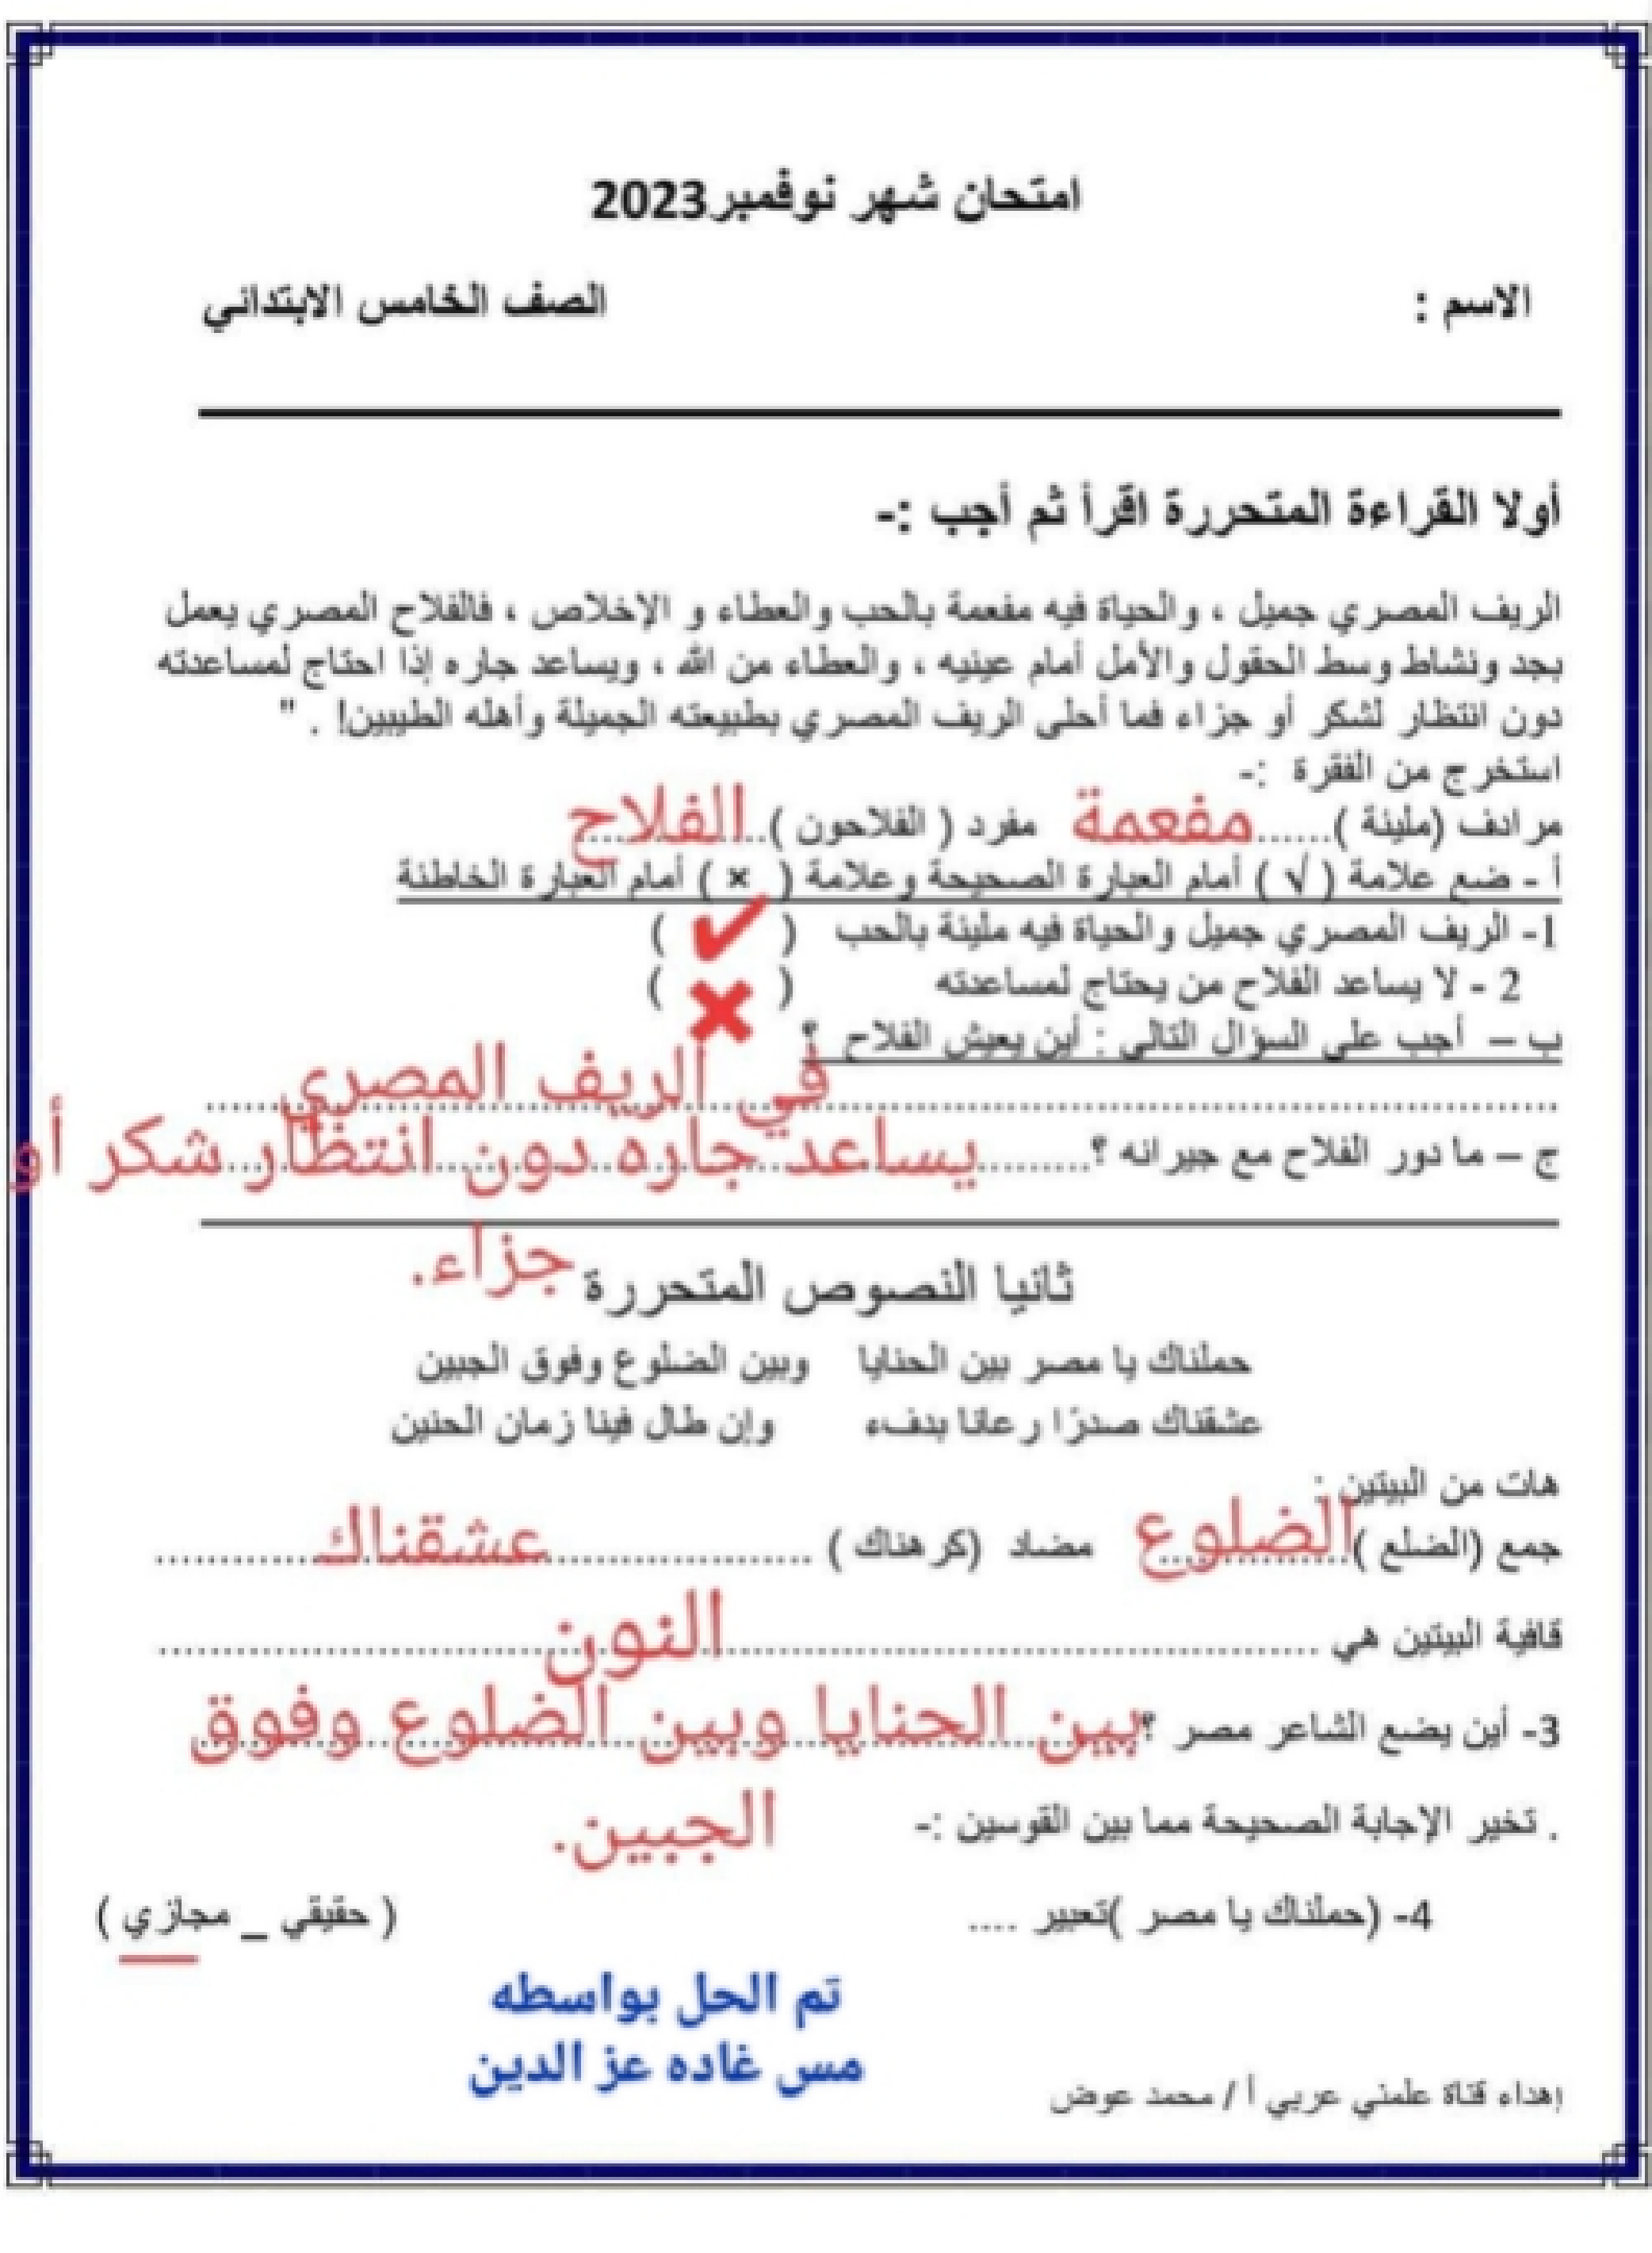 امتحان شهر نوفمبر2023
الاسم : الصف الخامس الابتدائي
أولا القراءة المتحررة اقرأ ثم أجب :-
الريف المصري جميل ، والحياة فيه مفعمة بالحب والعطاء و الإخلاص ، فالفلاح المصري يعمل
بجد ونشاط وسط الحقول والأمل أمام عينيه ، والعطاء من الله ، ويساعد جاره إذا احتاج لمساعدته
دون انتظار لشكر أو جزاء فما أحلى الريف المصري بطبيعته الجميلة وأهله الطيبين! . "
استخرج من الفقرة :-
مرادف (مليئة )......مفعمة مفرد ( الفلاحون )..الفلاح
أ - ضع علامة ( √ ) أمام العبارة الصحيحة وعلامة ( × ) أمام العبارة الخاطئة
1- الريف المصري جميل والحياة فيه مليئة بالحب ( ✔ )
2 - لا يساعد الفلاح من يحتاج لمساعدته ( ✖ )
ب – أجب على السؤال التالي : أين يعيش الفلاح ؟
في الريف المصري
ج – ما دور الفلاح مع جيرانه ؟.........يساعد جاره دون انتظار شكر أو
جزاء.
ثانيا النصوص المتحررة
حملناك يا مصر بين الحنايا وبين الضلوع وفوق الجبين
عشقناك صدرًا رعانا بدفء وإن طال فينا زمان الحنين
هات من البيتين :
جمع (الضلع )الضلوع مضاد (كرهناك ) ....................عشقناك............
قافية البيتين هي ..............................النون....................
3- أين يضع الشاعر مصر ؟بين الحنايا وبين الضلوع وفوق
الجبين.
. تخير الإجابة الصحيحة مما بين القوسين :-
4- (حملناك يا مصر )تعبير .... ( حقيقي _ مجازي )
تم الحل بواسطه
مس غاده عز الدين
إهداء قناة علمني عربي أ / محمد عوض